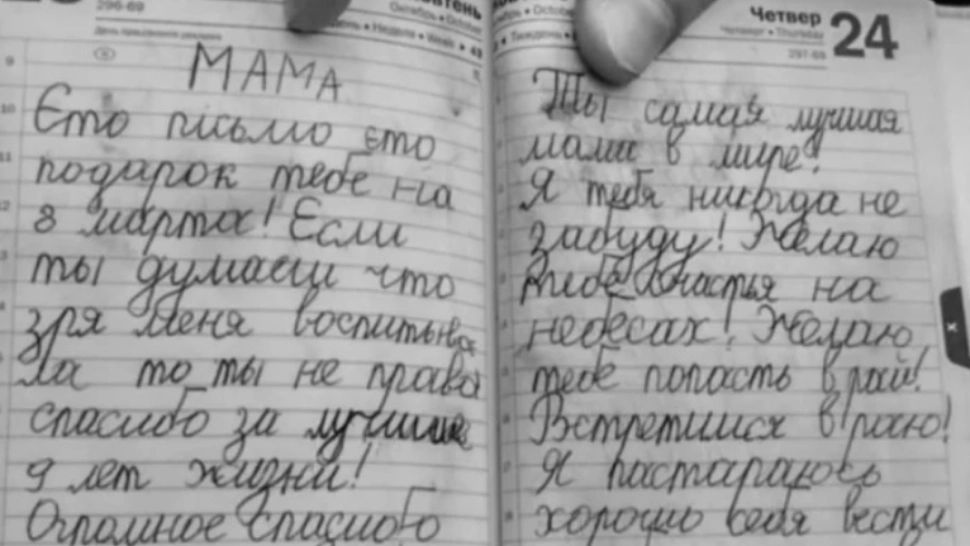 296-69
Октябрь • October
День працівника реклами
МАМА
Єто письмо єто
подарок тебе на
8 марта! Если
ты думаеш что
зря меня воспитыва
ла то ты не права
спасибо за лучшие
9 лет жизни!
Огромное спасибо
Четвер
Четверг • Thursday
24
297-68
Ты самая лучшая
мама в мире!
Я тебя никогда не
забуду! Желаю
тебе счастья на
небесах! Желаю
тебе попасть в рай!
Встретимся в раю!
Я пастараюсь
хорошо себя вести